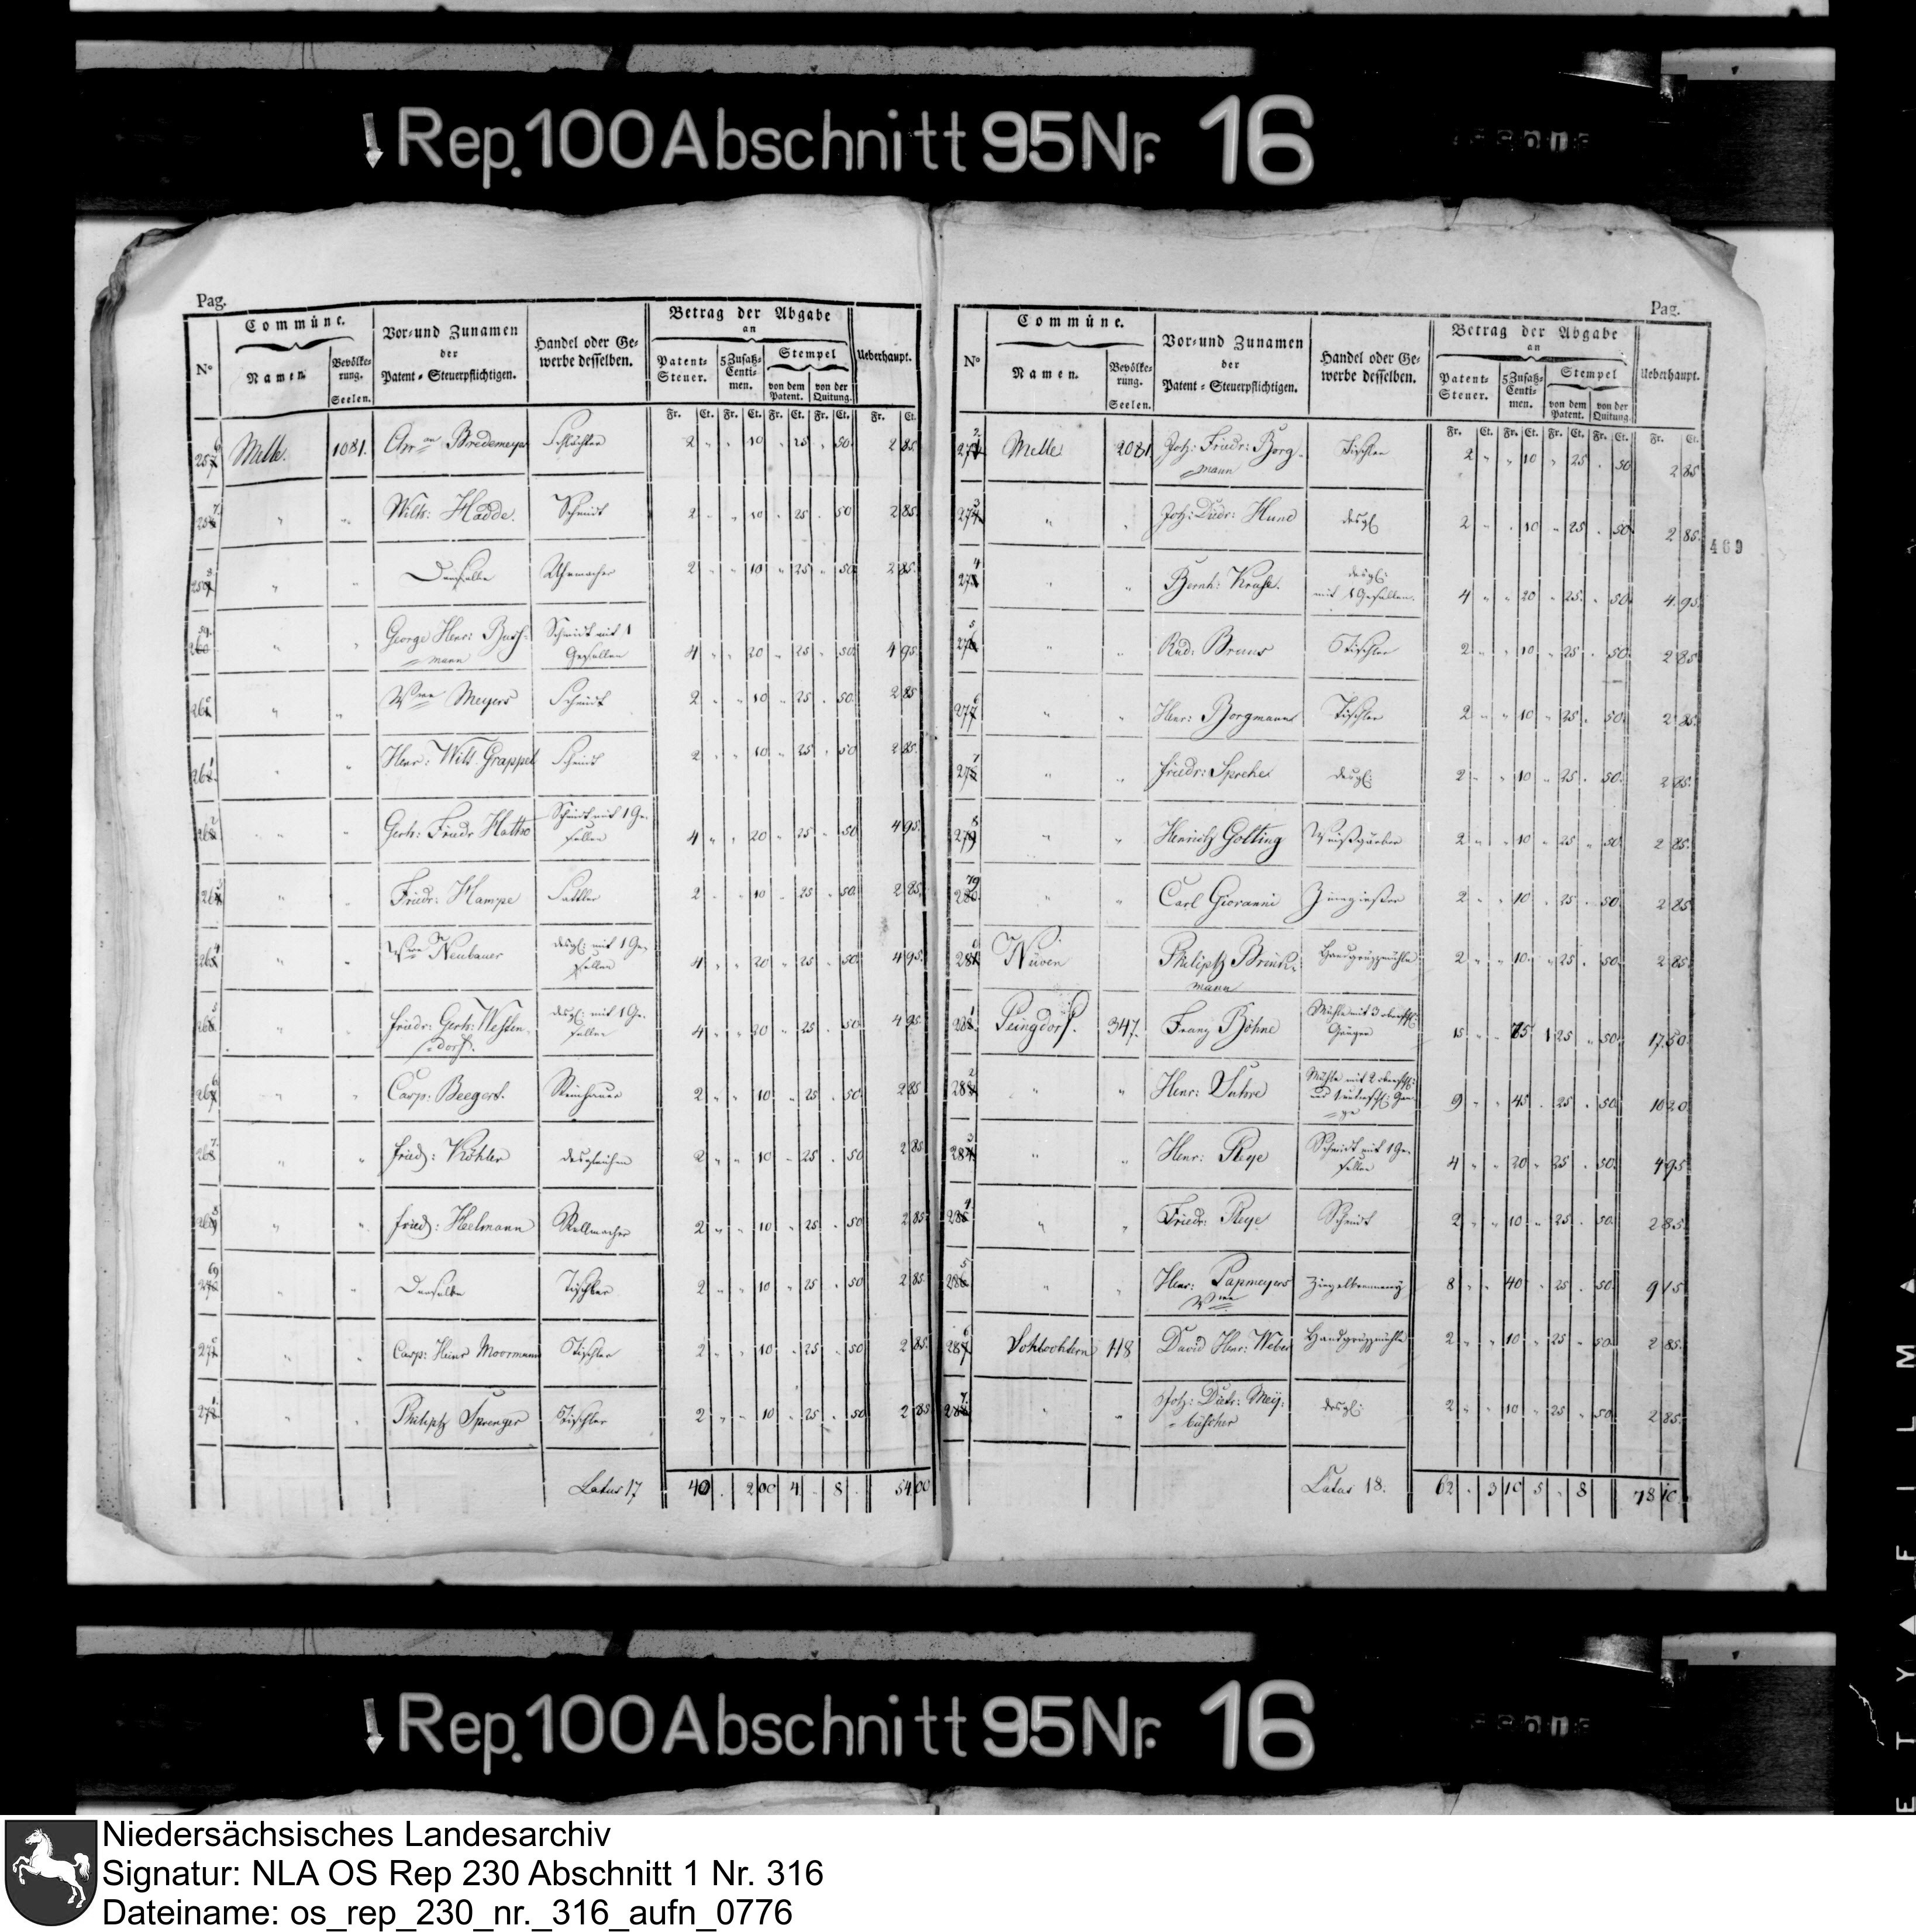 Rep.100Abschnitt95Nr. 16
Pag.
N° Commüne. Vor- und Zunamen der Patent-Steuerpflichtigen. Handel oder Gewerbe desselben. Betrag der Abgabe an Ueberhaupt.
Namen. Bevölkerung. Seelen. Patent-Steuer. 5 Zusatz-Centimen. Stempel von dem Patent. von der Quitung.
Fr. Ct. Fr. Ct. Fr. Ct. Fr. Ct. Fr. Ct.
Melle. 1081. Chr.an Bredemeyer 2 " " 10 " 25 " 50 2 85
" " Wilh: Hadde. Schmidt 2 " " 10 " 25 " 50 2 85
" " Derselbe Uhrmacher 2 " " 10 " 25 " 50 2 85.
" " George Henr: Buschmann Schmidt mit 1 Gesellen 4 " " 20 " 25 " 50 4 95
" " Wwe Meyers Schmidt 2 " " 10 " 25 " 50 2 85
" " Henr: Wilh. Grappel Schmidt 2 " " 10 " 25 " 50 2 85.
" " Gerh: Friedr Hatho Schmidt mit 1 Gesellen 4 " " 20 " 25 " 50 4 95.
" " Friedr: Hampe Sattler 2 " " 10 " 25 " 50 2 85.
" " Wwe Neubauer desgl: mit 1 Gesellen 4 " " 20 " 25 " 50 4 95.
" " Friedr: Gerh: Wesslendorf. desgl: mit 1 Gesellen 4 " " 20 " 25 " 50 4 95
" " Casp: Beegert. Steinhauer 2 " " 10 " 25 " 50 2 85
" " Fried: Köhler desgleichen 2 " " 10 " 25 " 50 2 85
" " Fried: Heelmann Rellmacher 2 " " 10 " 25 " 50 2 85
" " Derselbe Tischler 2 " " 10 " 25 " 50 2 85
" " Casp: Heinr Moormann Tischler 2 " " 10 " 25 " 50 2 85.
" " Philipp Sprenger Tischler 2 " " 10 " 25 " 50 2 85
Latus 17 40 . 2 00 4 . 8 . 54 00
Pag.
N° Commüne. Vor- und Zunamen der Patent-Steuerpflichtigen. Handel oder Gewerbe desselben. Betrag der Abgabe an Ueberhaupt.
Namen. Bevölkerung. Seelen. Patent-Steuer. 5 Zusatz-Centimen. Stempel von dem Patent. von der Quitung.
Fr. Ct. Fr. Ct. Fr. Ct. Fr. Ct. Fr. Ct.
Melle 2081. Joh: Friedr: Borgmann Tischler 2 " " 10 " 25 " 50 2 85
" " Joh: Diedr: Hund desgl 2 " " 10 " 25 " 50 2 85.
469
" " Bernh: Kruse. desgl: mit 1 Gesellen. 4 " " 20 " 25. " 50. 4.95.
" " Rud: Bruns Tischler 2 " " 10 " 25 " 50 2 85
" " Henr: Borgmann Tischler 2 " " 10 " 25 " 50. 2 85.
" " Friedr: Sprehe desgl: 2 " " 10 " 25 " 50. 2 85.
" " Henrich Golting Weißgärber 2 " " 10 " 25 " 50 2 85.
" " Carl Giovanni Zinngießer 2 " " 10 " 25 " 50. 2 85
Nüven Philipp Brinkmann Handgrüzmühle 2 " " 10. " 25 " 50. 2 85
347. Franz Böhne Mühle mit 3 oberschl: Gängen 15 " " 75 1 25 " 50. 17.50.
" " Henr: Suhre Mühle mit 2 oberschl: und 1 unterschl: Gange 9 " " 45 " 25 " 50. 10 20.
" " Henr: Steye Schmidt mit 1 Gesellen 4 " " 20 " 25 " 50. 4 95
" " Friedr: Steye Schmidt 2 " " 10 " 25 " 50. 2 85.
" " Henr: Papmeyers Wwe Ziegelbrennerey 8 " " 40 " 25 " 50. 9 15
118 David Henr: Weber Handgrüzmühle 2 " " 10 " 25 " 50 2 85.
" " Joh: Dietr: Meybüscher desgl: 2 " " 10 " 25 " 50. 2 85.
Latus 18. 62 . 3 10 5 . 8 78 10.
Rep.100Abschnitt95Nr. 16
Niedersächsisches Landesarchiv
Signatur: NLA OS Rep 230 Abschnitt 1 Nr. 316
Dateiname: os_rep_230_nr._316_aufn_0776